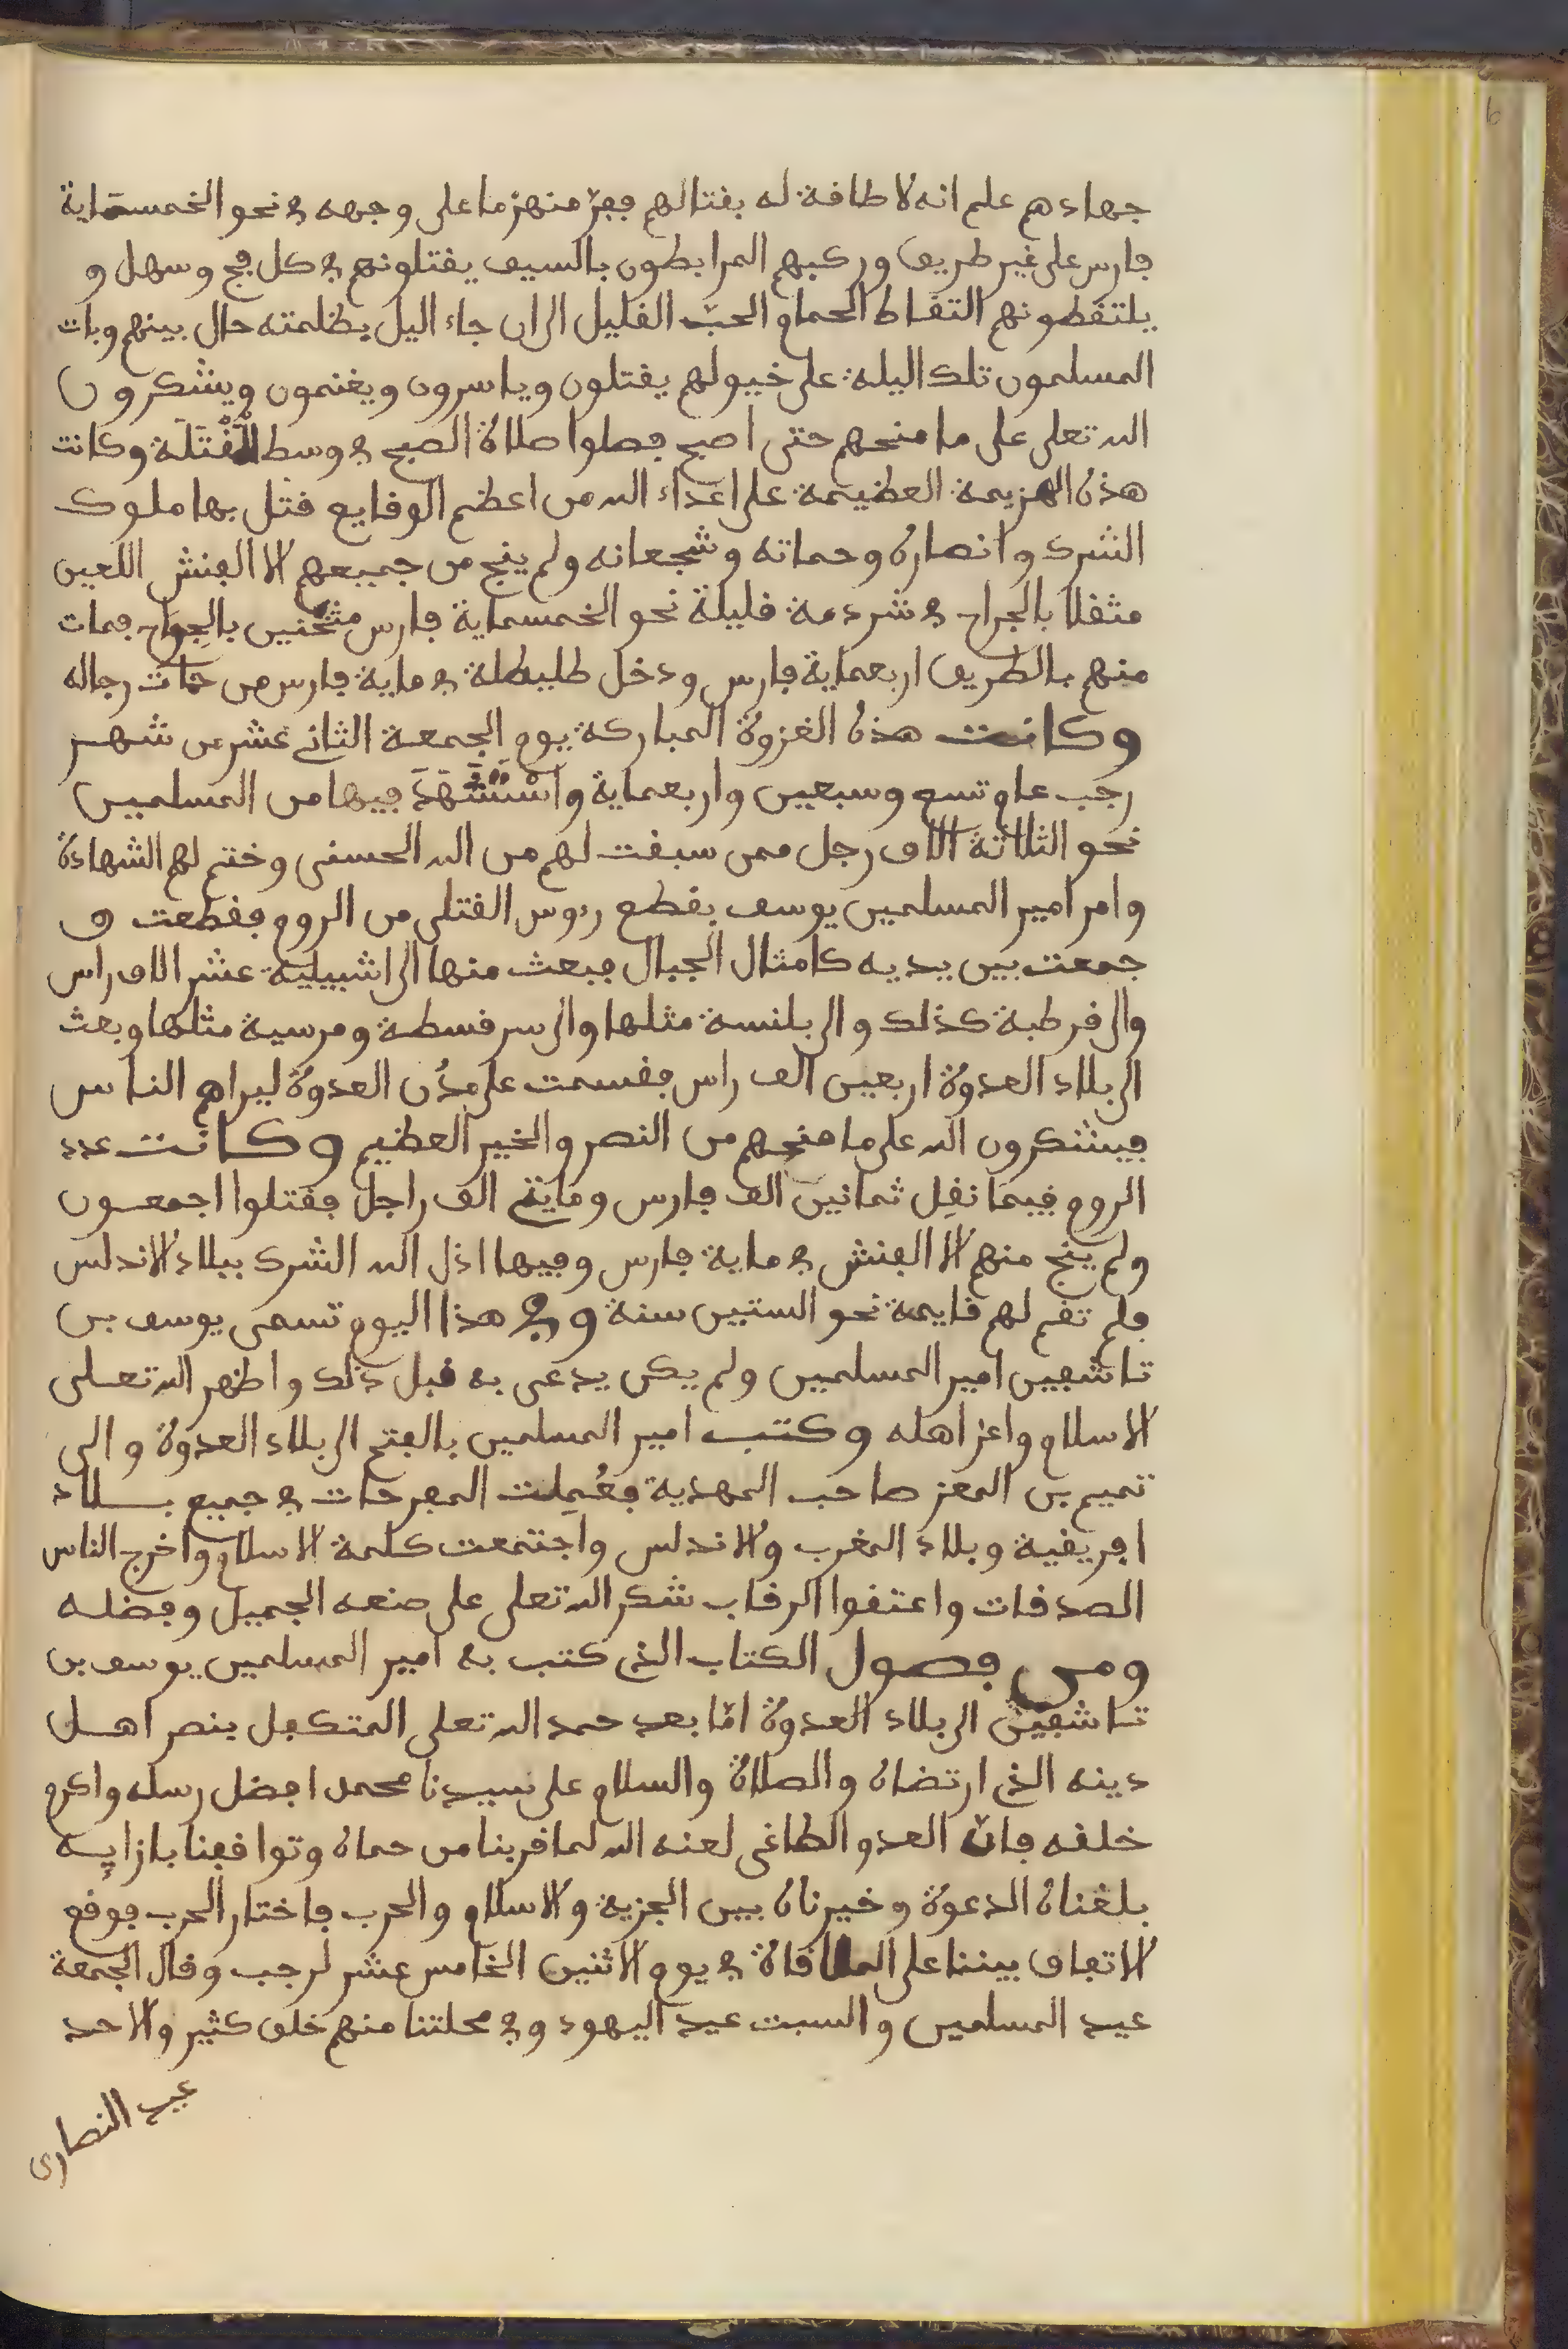 جهادهم علم انه لا طاقة له بقتالهم ففرّ منهزما على وجهه في نحو الخمسماية
فارس على غير طريق وركبهم المرابطون بالسيف يقتلونهم في كل فج وسهل و
يلتقطونهم التقاط الحمام الحبّ القليل الى ان جاء اليل بظلمته حال بينهم وبات
المسلمون تلك اليلة على خيولهم يقتلون وياسرون ويغنمون ويشكرون
الله تعلى على ما منحهم حتى اصبح فصلوا صلاة الصبح في وسط المَقْتَلَة وكانت
هذه الهزيمة العظيمة على اعداء الله من اعظم الوقايع قتل بها ملوك
الشرك وانصاره وحماته وشجعانه ولم ينج من جميعهم الا الفنش اللعين
مثقلا بالجراح في شردمة قليلة نحو الخمسماية فارس مثخَّنين بالجراح فمات
منهم بالطريق اربعماية فارس ودخل طليطلة في ماية فارس من حمات رجاله
وكانت هذه الغزوة المباركة يوم الجمعة الثاني عشر من شهر
رجب عام تسع وسبعين واربعماية واسْتُشْهَدَ فيها من المسلمين
نحو الثلاثة الاف رجل ممن سبقت لهم من الله الحسنى وختم لهم الشهادة
وامر امير المسلمين يوسف بقطع رءوس القتلى من الروم فقطعت و
جمعت بين يديه كامثال الجبال فبعث منها الى اشبيلية عشر الاف راس
والى قرطبة كذلك والى بلنسة مثلها والى سرقسطة ومرسية مثلها وبعث
الى بلاد العدوة اربعين الف راس فقسمت على مدُن العدوة ليراهم الناس
فيشكرون الله على ما منحهم من النصر والخير العظيم وكانت عدد
الروم فيما نقِل ثمانين الف فارس ومايتي الف راجل فقتلوا اجمعون
ولم ينج منهم الا الفنش في ماية فارس وفيها اذل الله الشرك ببلاد الاندلس
فلم تقم لهم قايمة نحو الستين سنة وفي هذا اليوم تسمى يوسف بن
تاشفين امير المسلمين ولم يكن يدعى به قبل ذلك واظهر الله تعلى
الاسلام واعز اهله وكتب امير المسلمين بالفتح الى بلاد العدوة والى
تميم بن المعز صاحب المهدية فعُمِلت المفرحات في جميع بلاد
افريقية وبلاد المغرب والاندلس واجتمعت كلمة الاسلام واخرج الناس
الصدقات واعتقوا الرقاب شكر الله تعلى على صنعه الجميل وفضله
ومن فصول الكتاب الذي كتب به امير المسلمين يوسف بن
تاشفين الى بلاد العدوة امّا بعد حمد الله تعلى المتكفل بنصر اهل
دينه الذي ارتضاه والصلاة والسلام على سيدنا محمد افضل رسله واكرم
خلقه فانّ العدو الطاغى لعنه الله لما قربنا من حماه وتوافقنا بازايه
بلغناه الدعوة وخيرناه بين الجزية والاسلام والحرب فاختار الحرب فوقع
الاتفاق بيننا على الملاقاة في يوم الاثنين الخامس عشر لرجب وقال الجمعة
عيد المسلمين والسبت عيد اليهود وفي محلتنا منهم خلق كثير والاحد
عيد النصارى